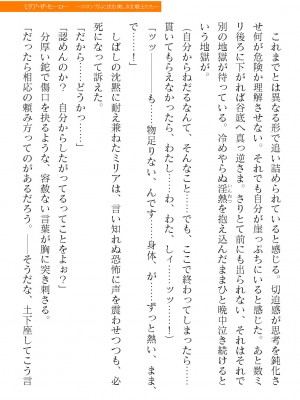 これまでとは異なる形で追い詰められていると感じる。切迫感が思考を鈍化さ
せ何が危険か理解させない。それでも自分が崖っぷちにいると感じた。あと数ミ
リ後ろに下がれば谷底へ真っ逆さま。さりとて前にも出られない、それはそれで
別の地獄が待っている。冷めやらぬ淫熱を抱え込んだままひと晩中泣き続けると
いう地獄が。
（自分からねだるなんて、そんなこと……でも、ここで終わってしまったら……
貫いてもらえなかったら、わたし……わ、わた、しィ……ッッ……！）
「ッッ――――も……物足りない、んです……身体、が……ずっと熱い、まま、
だから……どうかっ……」
しばしの沈黙に耐え兼ねたミリアは、言い知れぬ恐怖に声を震わせつつも、必
死になって訴えた。
「認めんのか？　自分からしたがってるってことをよぉ？」
分厚い鉈で傷口を抉るような、容赦ない言葉が胸に突き刺さる。
「だったら相応の頼み方ってのがあるだろう。――そうだな、土下座してこう言